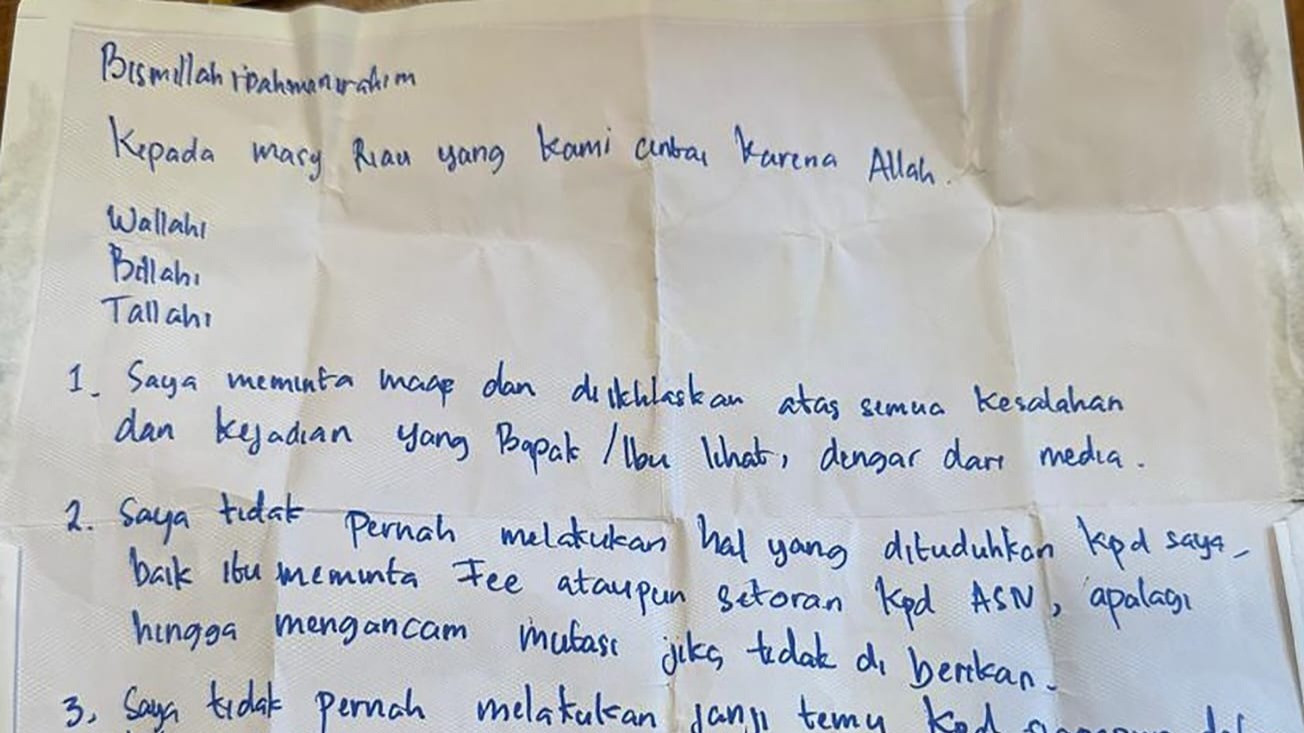 Bismillahirrahmanirrahim
Kepada masy Riau yang kami cintai karena Allah.
Wallahi
Billahi
Tallahi
1. Saya meminta maaf dan diikhlaskan atas semua kesalahan
dan kejadian yang Bapak/Ibu lihat, dengar dari media.
2. Saya tidak pernah melakukan hal yang dituduhkan kpd saya-
baik itu meminta Fee ataupun setoran kpd ASN, apalagi
hingga mengancam mutasi jika tidak di berikan.
3. Saya tidak pernah melakukan janji temu kpd